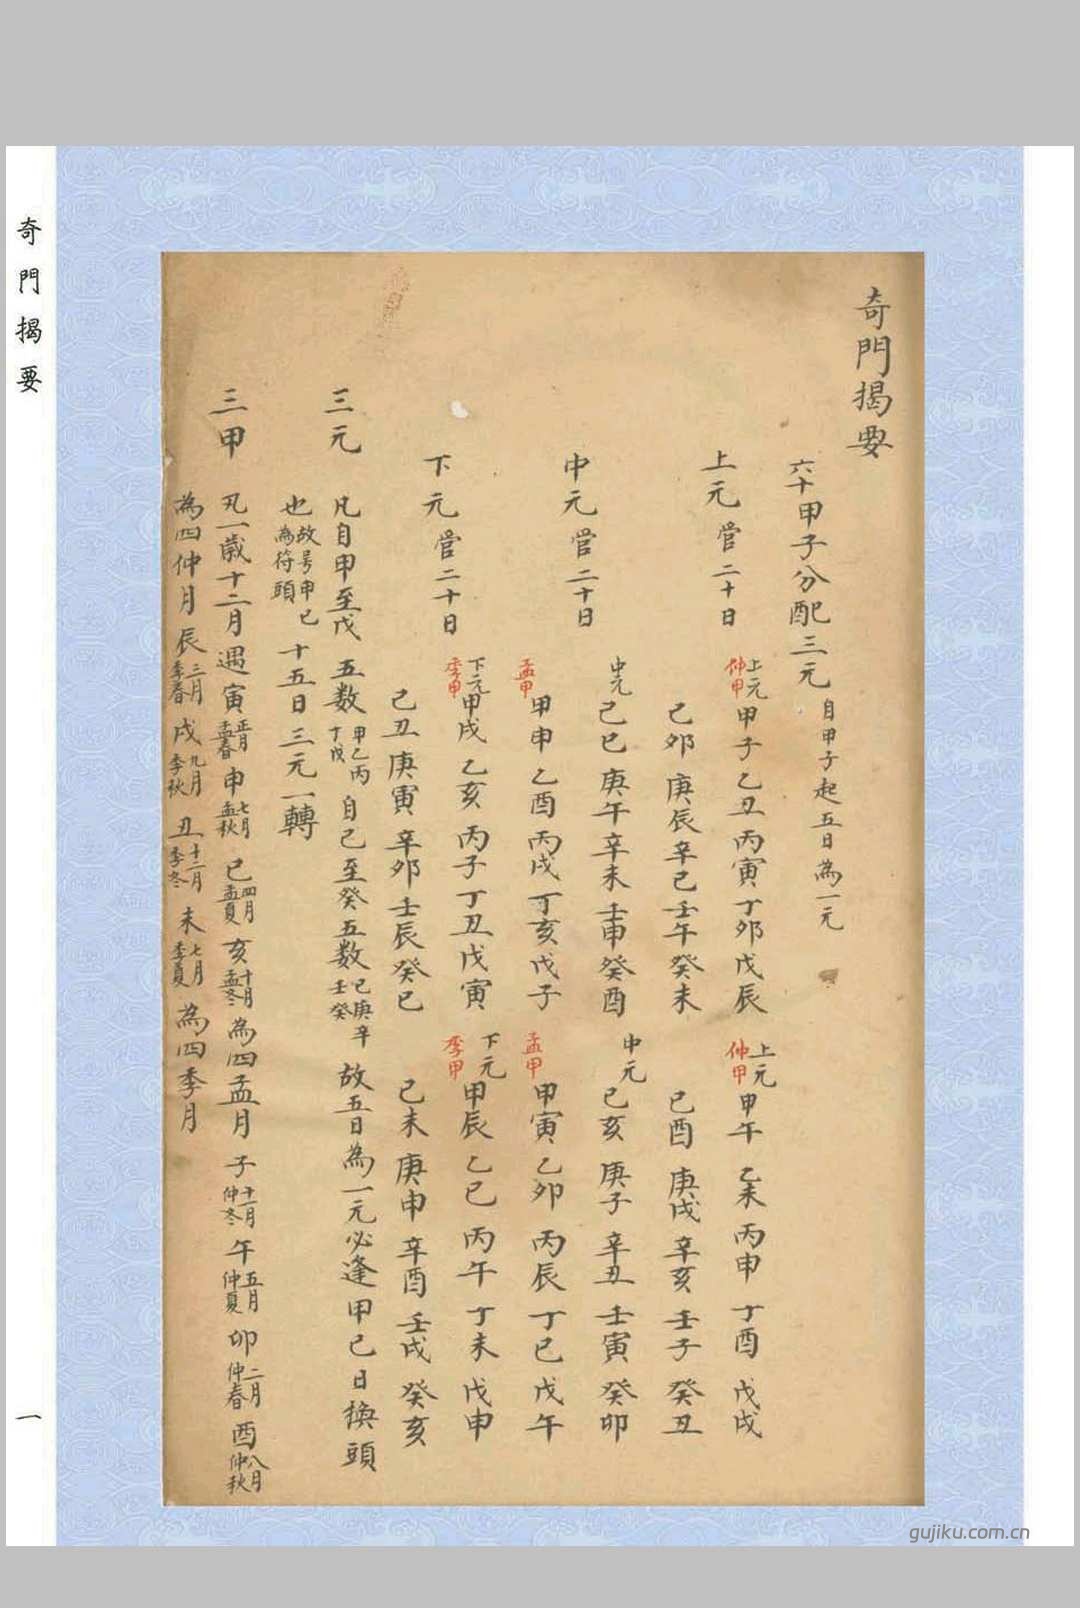 奇門揭要
六十甲子分配三元 自甲子起五日為一元
上元管二十日 上元 仲甲 甲子乙丑丙寅丁卯戊辰 上元 仲甲 甲午乙未丙申丁酉戊戌
己卯庚辰辛巳壬午癸未 己酉庚戌辛亥壬子癸丑
中元管二十日 中元 己巳庚午辛未壬申癸酉 中元 己亥庚子辛丑壬寅癸卯
孟甲 甲申乙酉丙戌丁亥戊子 孟甲 甲寅乙卯丙辰丁巳戊午
下元管二十日 下元 季甲 甲戌乙亥丙子丁丑戊寅 下元 季甲 甲辰乙巳丙午丁未戊申
己丑庚寅辛卯壬辰癸巳 己未庚申辛酉壬戌癸亥
三元 凡自甲至戊五数 甲乙丙丁戊 自己至癸五数 己庚辛壬癸 故五日為一元必逢甲己日換頭
也 故号甲己為符頭 十五日三元一轉
三甲 凡一歲十二月遇寅 正月孟春 申 七月孟秋 巳 四月孟夏 亥 十月孟冬 為四孟月子 十一月仲冬 午 五月仲夏 卯 二月仲春 酉 八月仲秋
為四仲月辰 三月季春 戌 九月季秋 丑 十二月季冬 未 七月季夏 為四季月
奇門揭要
一
gujiku.com.cn